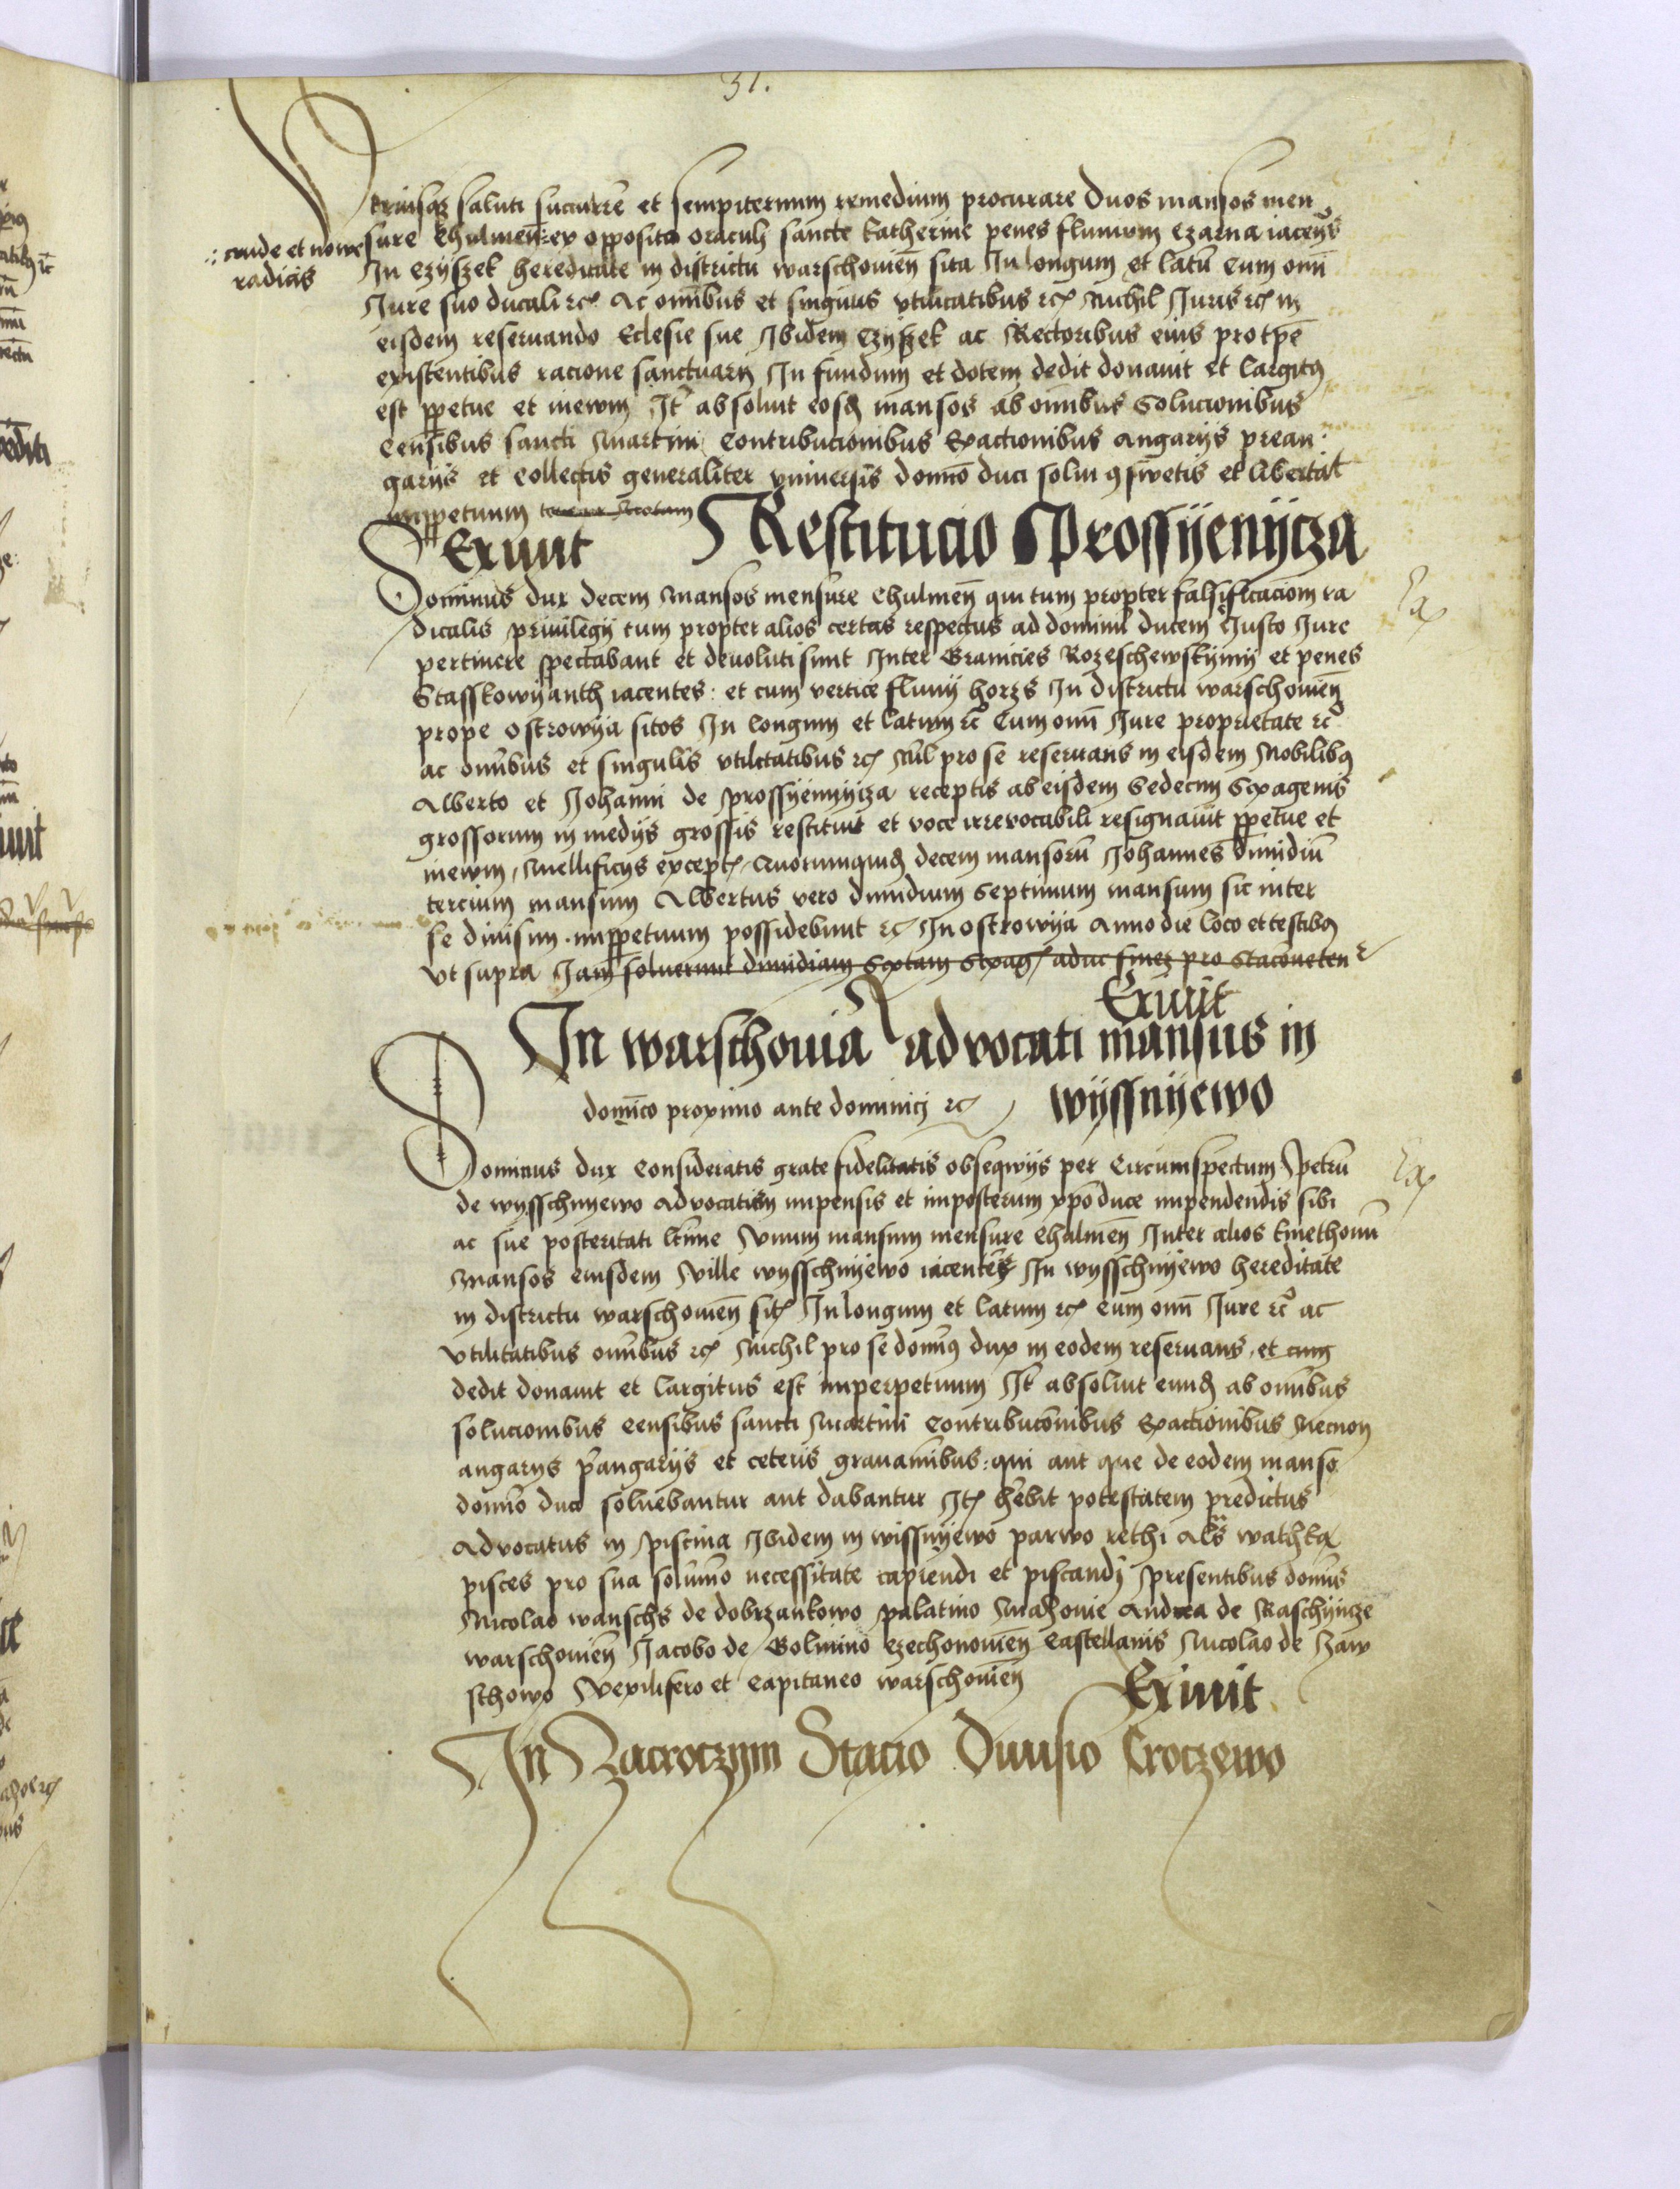 31.
utriusque saluti succurre et sempiternum remedium procurare Duos mansos men
:: crude et nowe
radicis
sure Chulmen̄ ex opposito oraculi sancte Katherine penes fluvium Czarna iacen̄
In Czyszek hereditate in districtu warschouien̄ sita In longum et latū Cum omī
Jure suo ducali rc̄ Ac omībus et singulis vtilitatibus rc̄ Nichil Juris rc̄ in
eisdem reseruando Eclesie sue Ibidem Czyszek ac Rectoribus eius pro tpe
existentibus racione sanctuarij In fundum et dotem dedit donauit et largitus
est ppetue et in ewm Jt absoluit eosdem mansos ab omībus Solucionibus
Censibus sancti Martini Contribucionibus Exactionibus angarijs prean
garijs et Collectis generaliter vniuersis domīo duci solui consuetis et libertat
imppetuum
Exiuit Restitucio Prossyenycza
Dominus dux decem Mansos mensure Chulmen̄ qui tum propter falsificaciom ra
dicalis priuilegij tum propter alios certos respectus ad dominū ducem Justo Jure
pertinere spectabant et deuoluti sunt Inter Granicies Rozeschewskymy et penes
Stasskowyanth iacentes : et cum vertice fluuij horzs In districtu warschouien̄
prope Ostrowya sitos In longum et latum rc̄ Cum omī Jure proprietate rc̄
ac omībus et singulis vtilitatibus rc̄ Nil pro se reseruans in eisdem Nobilibus
Alberto et Johanni de Prossyenycza receptis ab eisdem Sedecim Sexagenis
grossorum in medijs grossis restituit et voce irrevocabili resignauit ppetue et
in ewm Mellificijs exceptis Quorumquidem decem mansorū Johannes dimidiū
tercium mansum Albertus vero dimidium Septimum mansum sic inter
se diuisim imppetuum possidebunt rc̄ In Ostrowya Anno die loco et testibus
vt supra Jam soluerunt dimidiam Sextam Sexag aduc
Exiuit
In warschouia advocati mansus in
domīco proximo ante dominici rc̄ wyssnyewo
Dominus dux Consideratis grate fidelitatis obseqwijs per Circumspectum Petrū
de wysschnyewo Advocatum impensis et imposterum xpo duce impendendis sibi
ac sue posteritati ltīme Vnum mansum mensure Chulmen̄ Inter alios kmethonū
Mansos eiusdem Ville wysschnyewo iacentes In wysschnyewo hereditate
in districtu warschouien̄ sit In longum et latum rc̄ Cum omī Jure rc̄ ac
vtilitatibus omībus rc̄ Nichil pro se domīus dux in eodem reseruans et cum
dedit donauit et largitus est imperpetuum Jt absoluit eundem ab omībus
solucionibus Censibus sancti Martini Contribucōnibus Exactionibus Necnon
angarijs p̄angarijs et ceteris grauamībus : qui aut que de eodem manso
domīo duci soluebantur aut dabantur Jt hēbit potestatem predictus
Advocatus in piscina Ibidem in wissnyewo parwo rethi als wathta
pisces pro sua solummo necessitate capiendi et piscandi Presentibus domīs
Nicolao wanschs de dobrzankowo palatino Mazouie Andrea de Raschyncze
warschouien̄ Jacobo de Golmino Czechonouien̄ Castellanis Nicolao de Zaw
schowo Vexilifero et Capitaneo warschouien̄ Exiuit
In Zacroczym Stacio Diuisio Croczewo